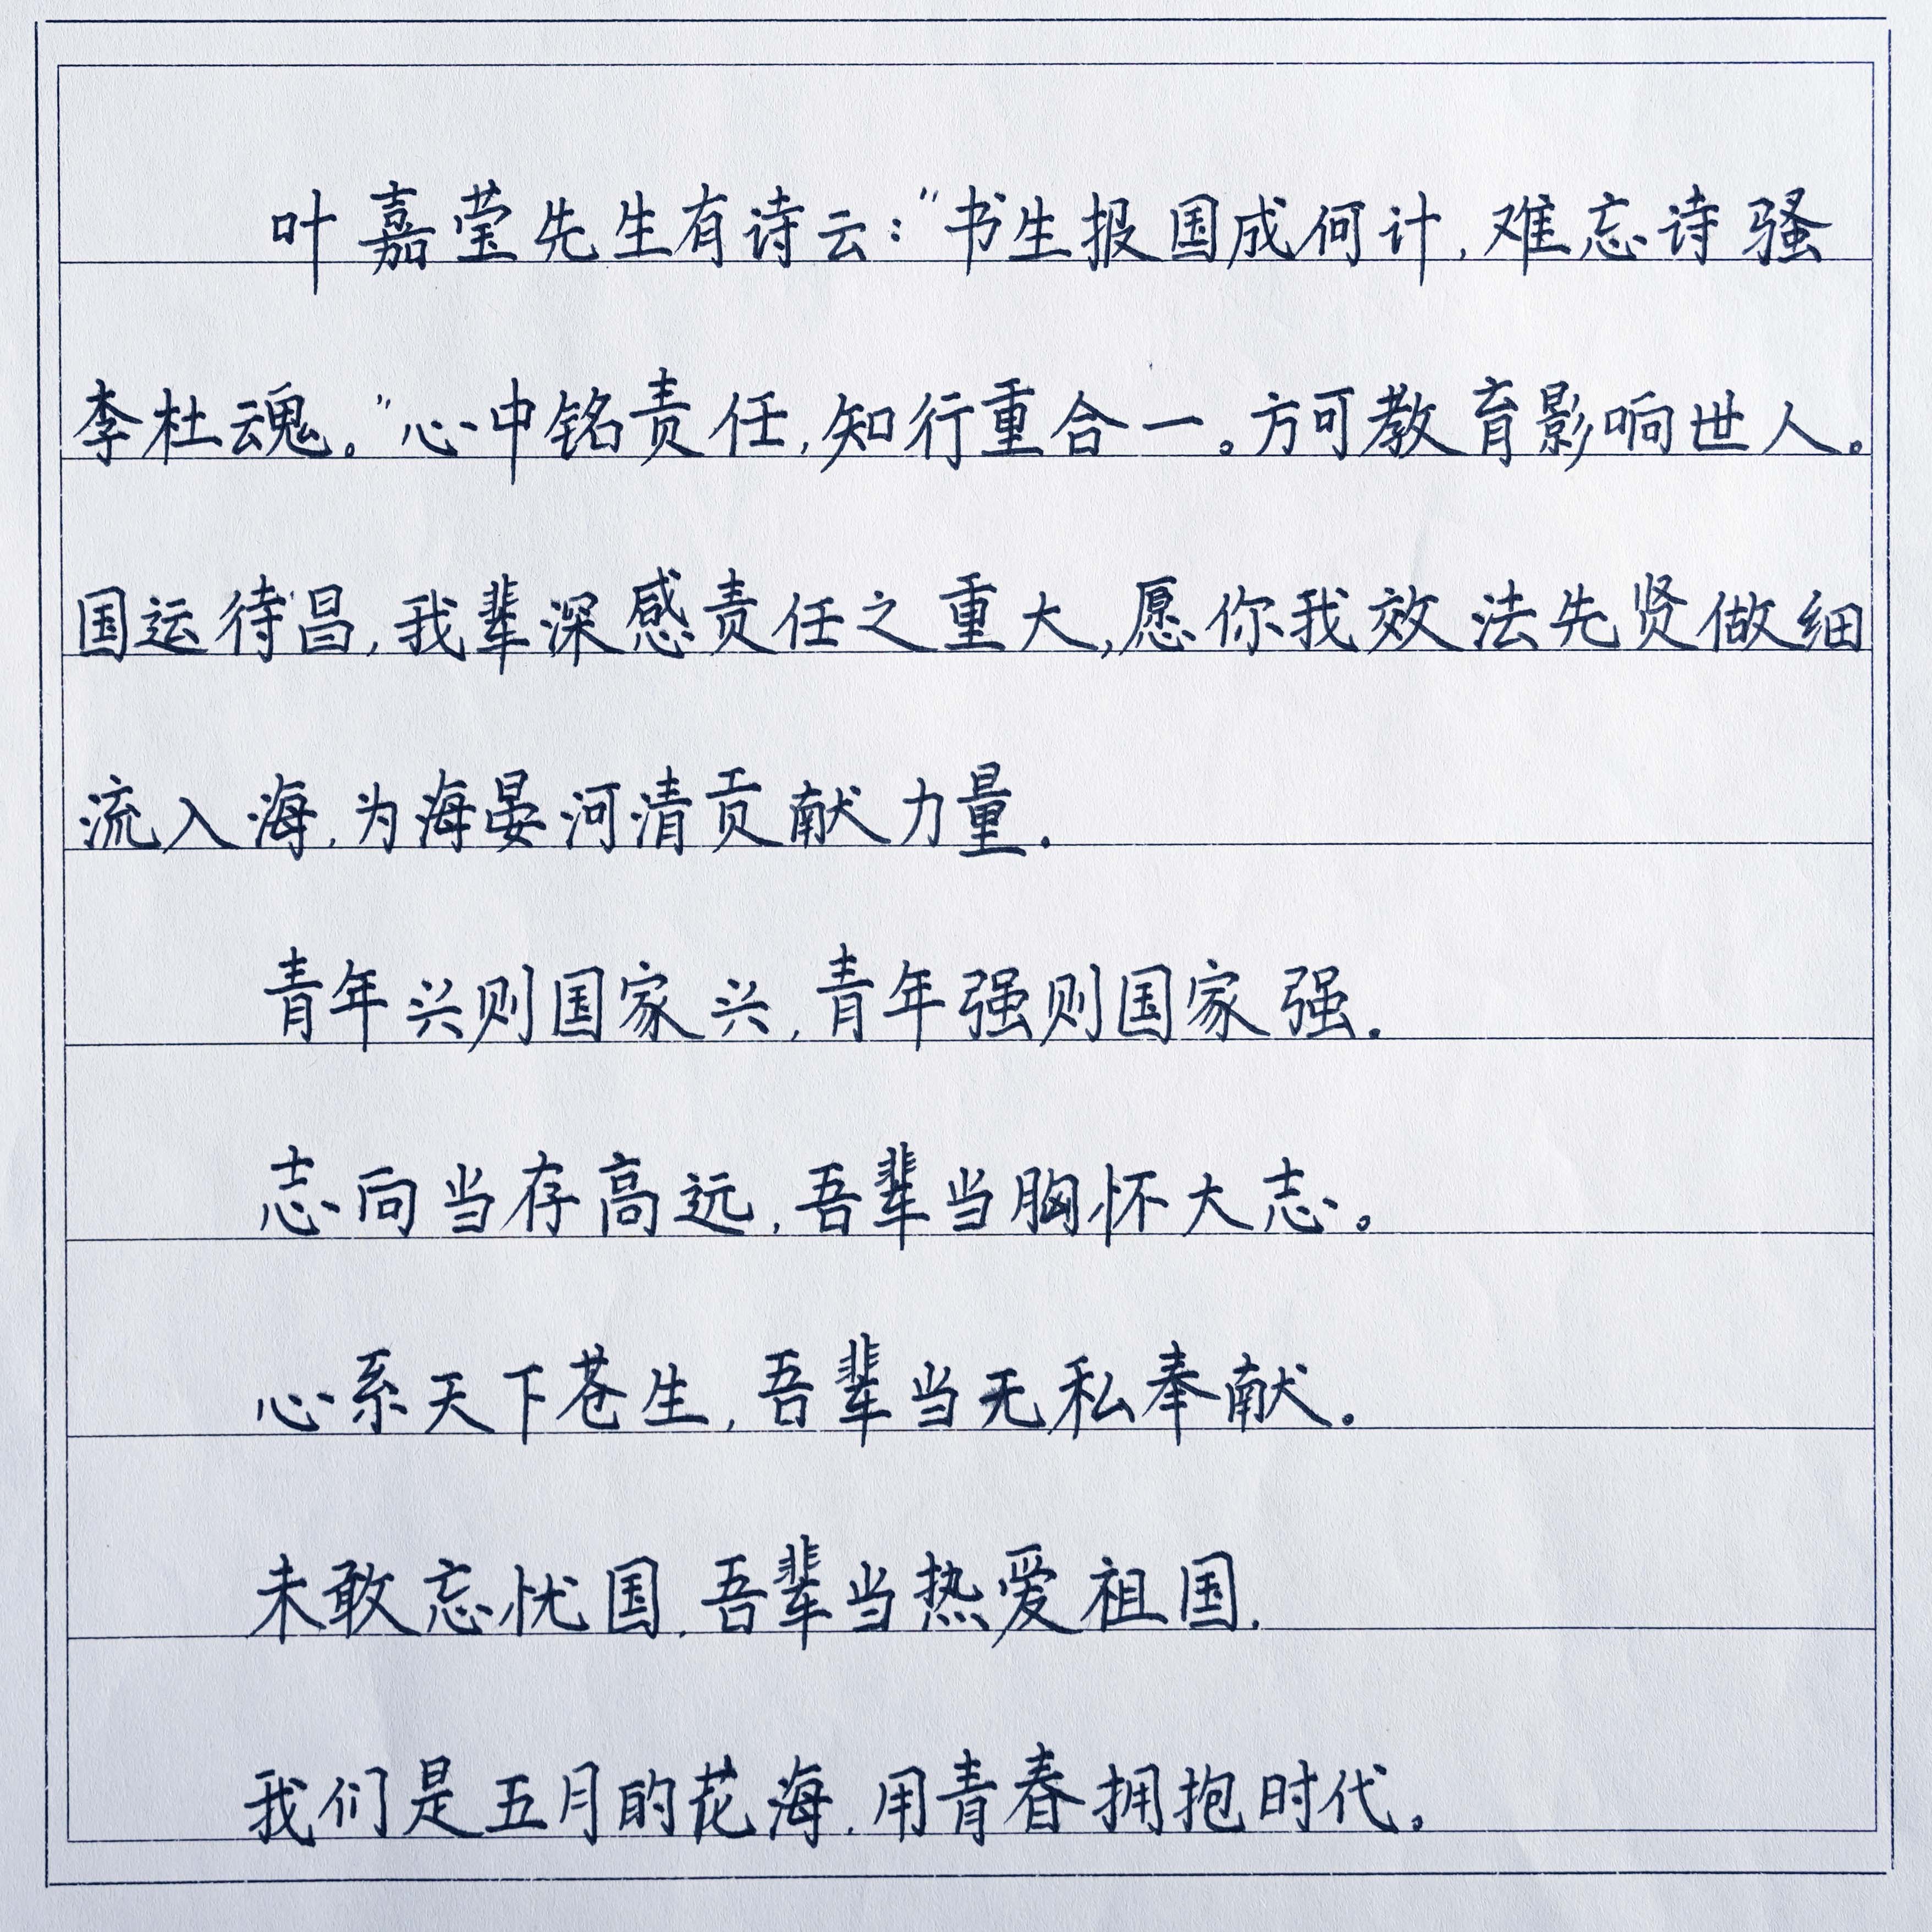 叶嘉莹先生有诗云:"书生报国成何计,难忘诗骚
李杜魂。"心中铭责任,知行重合一。方可教育影响世人。
国运待昌,我辈深感责任之重大,愿你我效法先贤做细
流入海,为海晏河清贡献力量.
青年兴则国家兴,青年强则国家强.
志向当存高远,吾辈当胸怀大志。
心系天下苍生,吾辈当无私奉献.
未敢忘忧国,吾辈当热爱祖国.
我们是五月的花海,用青春拥抱时代。